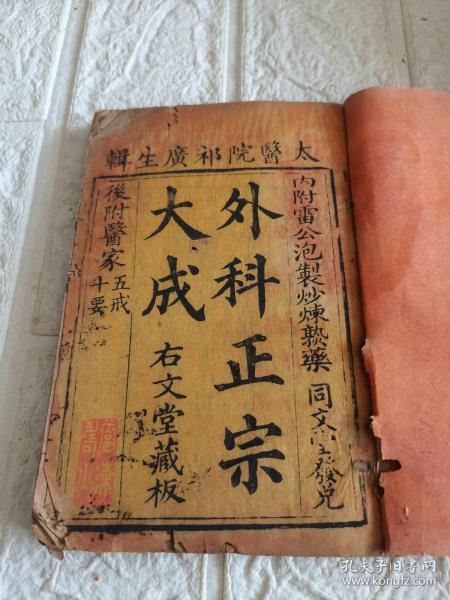 太醫院祁廣生輯
內附雷公泡製炒煉熟藥 同文堂發兌
外科正宗
大成 右文堂藏板
後附醫家五戒十要
孔夫子旧书网
www.kongfz.com